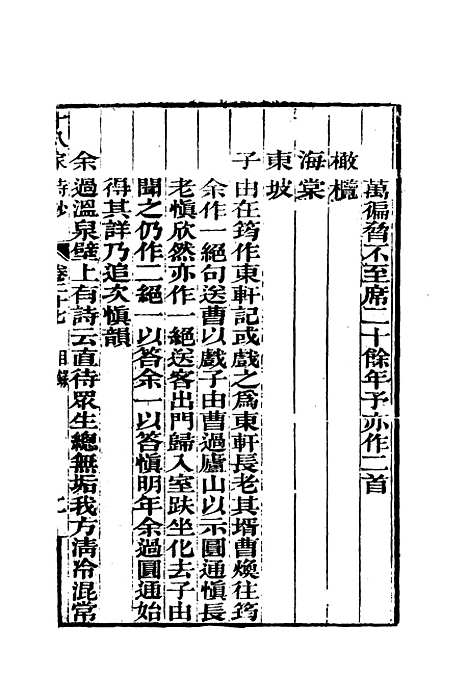 萬徧脅不至席二十餘年予亦作二首
橄欖
海棠
東坡
子由在筠作東軒記或戲之為東軒長老其壻曹煥往筠
余作一絕句送曹以戲子由曹過廬山以示圓通慎長
老慎欣然亦作一絕送客出門歸入室趺坐化去子由
聞之仍作二絕一以答余一以答慎明年余過圓通始
得其詳乃追次慎韻
余過溫泉壁上有詩云直待眾生總無垢我方清冷混常
十八家詩鈔 卷二十七 目錄